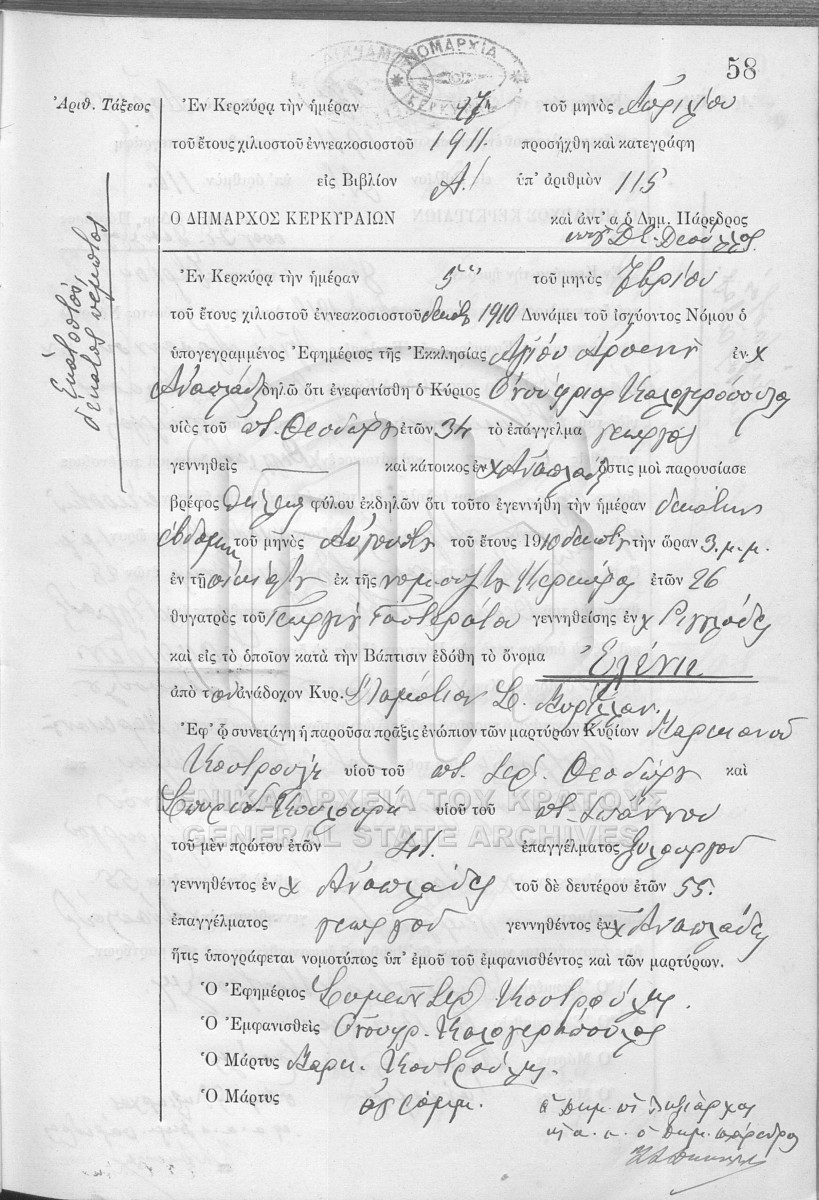 ΝΟΜΑΡΧΙΑ
ΚΕΡΚΥΡΑΣ
58
Ἀριθ. Τάξεως
Ἐν Κερκύρᾳ τὴν ἡμέραν 27 τοῦ μηνὸς Ἀπριλίου
τοῦ ἔτους χιλιοστοῦ ἐννεακοσιοστοῦ 1911. προσήχθη καὶ κατεγράφη
εἰς Βιβλίον Α! ὑπ' ἀριθμὸν 115
Ο ΔΗΜΑΡΧΟΣ ΚΕΡΚΥΡΑΙΩΝ καὶ ἀντ' α ὁ Δημ. Πάρεδρος
Ἑκατοστός
δέκατος πέμπτος
Ἐν Κερκύρᾳ τὴν ἡμέραν 5 τοῦ μηνὸς
τοῦ ἔτους χιλιοστοῦ ἐννεακοσιοστοῦ 1910 Δυνάμει τοῦ ἰσχύοντος Νόμου ὁ
ὑπογεγραμμένος Ἐφημέριος τῆς Ἐκκλησίας Ἁγίου ἐν χ
Ἀναπλάδες δηλῶ ὅτι ἐνεφανίσθη ὁ Κύριος Ὀνούφριος Καλογερόπουλος
υἱὸς τοῦ ποτ. Θεοδώρου ἐτῶν 34 τὸ ἐπάγγελμα γεωργός
γεννηθεὶς — καὶ κάτοικος ἐν χ Ἀναπλάδες ὅστις μοὶ παρουσίασε
βρέφος θήλεος φύλου ἐκδηλῶν ὅτι τοῦτο ἐγεννήθη τὴν ἡμέραν δεκάτην
ἑβδόμην τοῦ μηνὸς Αὐγούστου τοῦ ἔτους 1910 τὴν ὥραν 3 μ.μ.
ἐν τῇ οἰκίᾳ ἐκ τῆς νομ. συζ. ἐτῶν 26
θυγατρὸς τοῦ Γεωργίου γεννηθείσης ἐν χ Ριγγλάδες
καὶ εἰς τὸ ὁποῖον κατὰ τὴν Βάπτισιν ἐδόθη τὸ ὄνομα Ἑλένη
ἀπὸ τὸν ἀνάδοχον Κυρ. Σταμάτιον
Ἐφ' ᾧ συνετάγη ἡ παροῦσα πρᾶξις ἐνώπιον τῶν μαρτύρων Κυρίων Μαρκιανοῦ
Κουτρούλη υἱοῦ τοῦ ποτ. Ἱερ. Θεοδώρου καὶ
Σπυρίδ. υἱοῦ τοῦ ποτ. Ἰωάννου
ΓΕΝΙΚΑ ΑΡΧΕΙΑ ΤΟΥ ΚΡΑΤΟΥΣ
GENERAL STATE ARCHIVES
τοῦ μὲν πρώτου ἐτῶν 41. ἐπαγγέλματος ξυλουργοῦ
γεννηθέντος ἐν χ Ἀναπλάδες τοῦ δὲ δευτέρου ἐτῶν 55.
ἐπαγγέλματος γεωργοῦ γεννηθέντος ἐν χ Ἀναπλάδες
ἥτις ὑπογράφεται νομοτύπως ὑπ' ἐμοῦ τοῦ ἐμφανισθέντος καὶ τῶν μαρτύρων.
Ὁ Ἐφημέριος Συμεὼν Ἱερ. Κουτρούλης.
Ὁ Ἐμφανισθεὶς Ὀνούφρ. Καλογερόπουλος
Ὁ Μάρτυς Μαρκ. Κουτρούλης.
Ὁ Μάρτυς ἀγράμμ.
ὁ Δημ.
κ. α. α. ὁ δημ. πάρεδρος